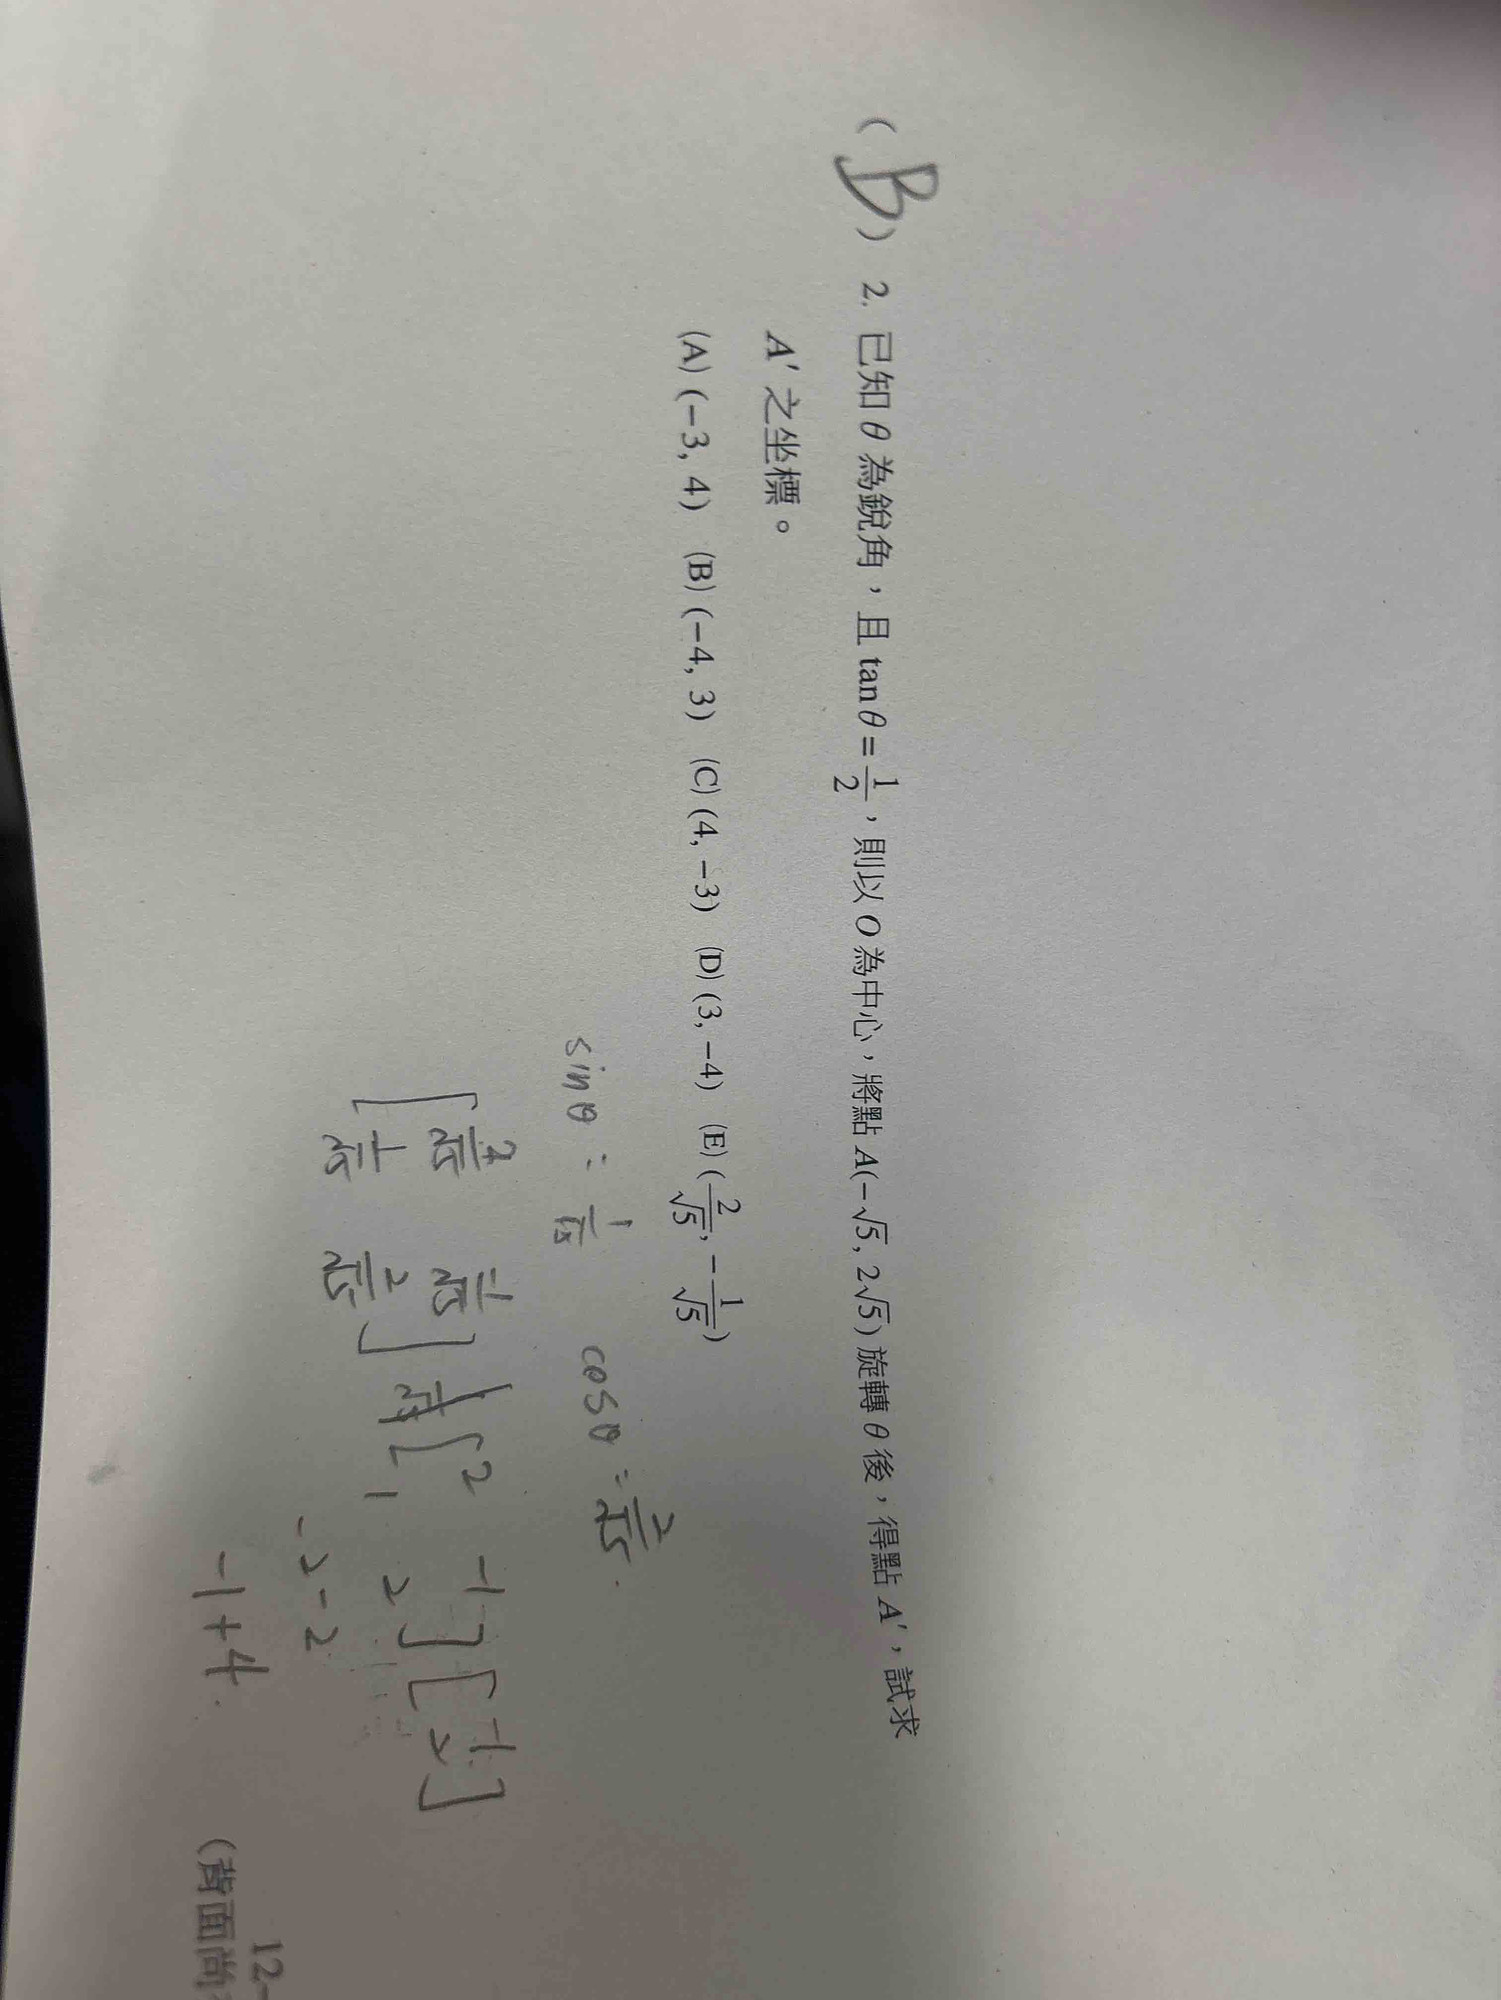 ( B ) 2. 已知 θ 為銳角，且 tanθ = 1/2，則以 O 為中心，將點 A(−√5, 2√5) 旋轉 θ 後，得點 A′，試求
A′ 之坐標。
(A) (−3, 4) (B) (−4, 3) (C) (4, −3) (D) (3, −4) (E) (2/√5, −1/√5)
sinθ = 1/√5 cosθ = 2/√5
[2/√5 -1/√5] [2 -1] [-1]
[1/√5 2/√5] [1 2] [2]
-2-2
-1+4
12-
(背面尚